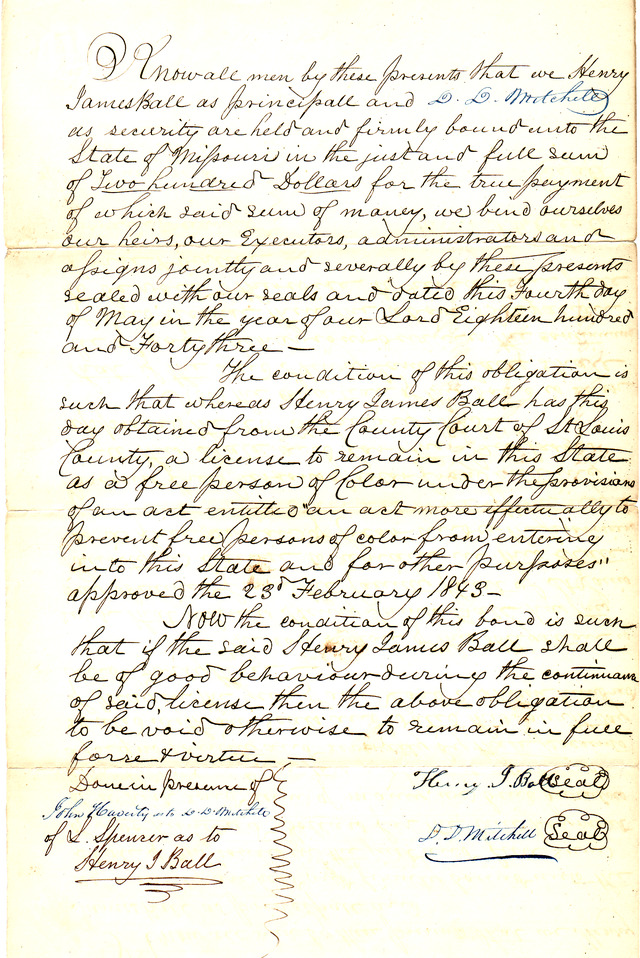 Know all men by these presents that we Henry
James Ball as principall and D. D. Mitchell
as security are held and firmly bound unto the
State of Missouri in the just and full sum
of Two hundred Dollars for the true payment
of which said sum of money, we bind ourselves
our heirs, our Executors, administrators and
assigns jointly and severally by these presents
sealed with our seals and dated this Fourth day
of May in the year of our Lord Eighteen hundred
and Forty three —
The condition of this obligation is
such that whereas Henry James Ball has this
day obtained from the County Court of St Louis
County, a license to remain in this State
as a free person of Color under the provisions
of an act entitled "an act more effectually to
prevent free persons of color from entering
into this State and for other purposes"
approved the 23d February 1843 —
Now the condition of this bond is such
that if the said Henry James Ball shall
be of good behaviour during the continuance
of said, license then the above obligation
to be void otherwise to remain in full
forse & virtue, —
Done in presence of
John Haverty as to D. D. Mitchell
of L. Spencer as to
Henry J Ball
Henry J. Ball Seal
D. D. Mitchell Seal